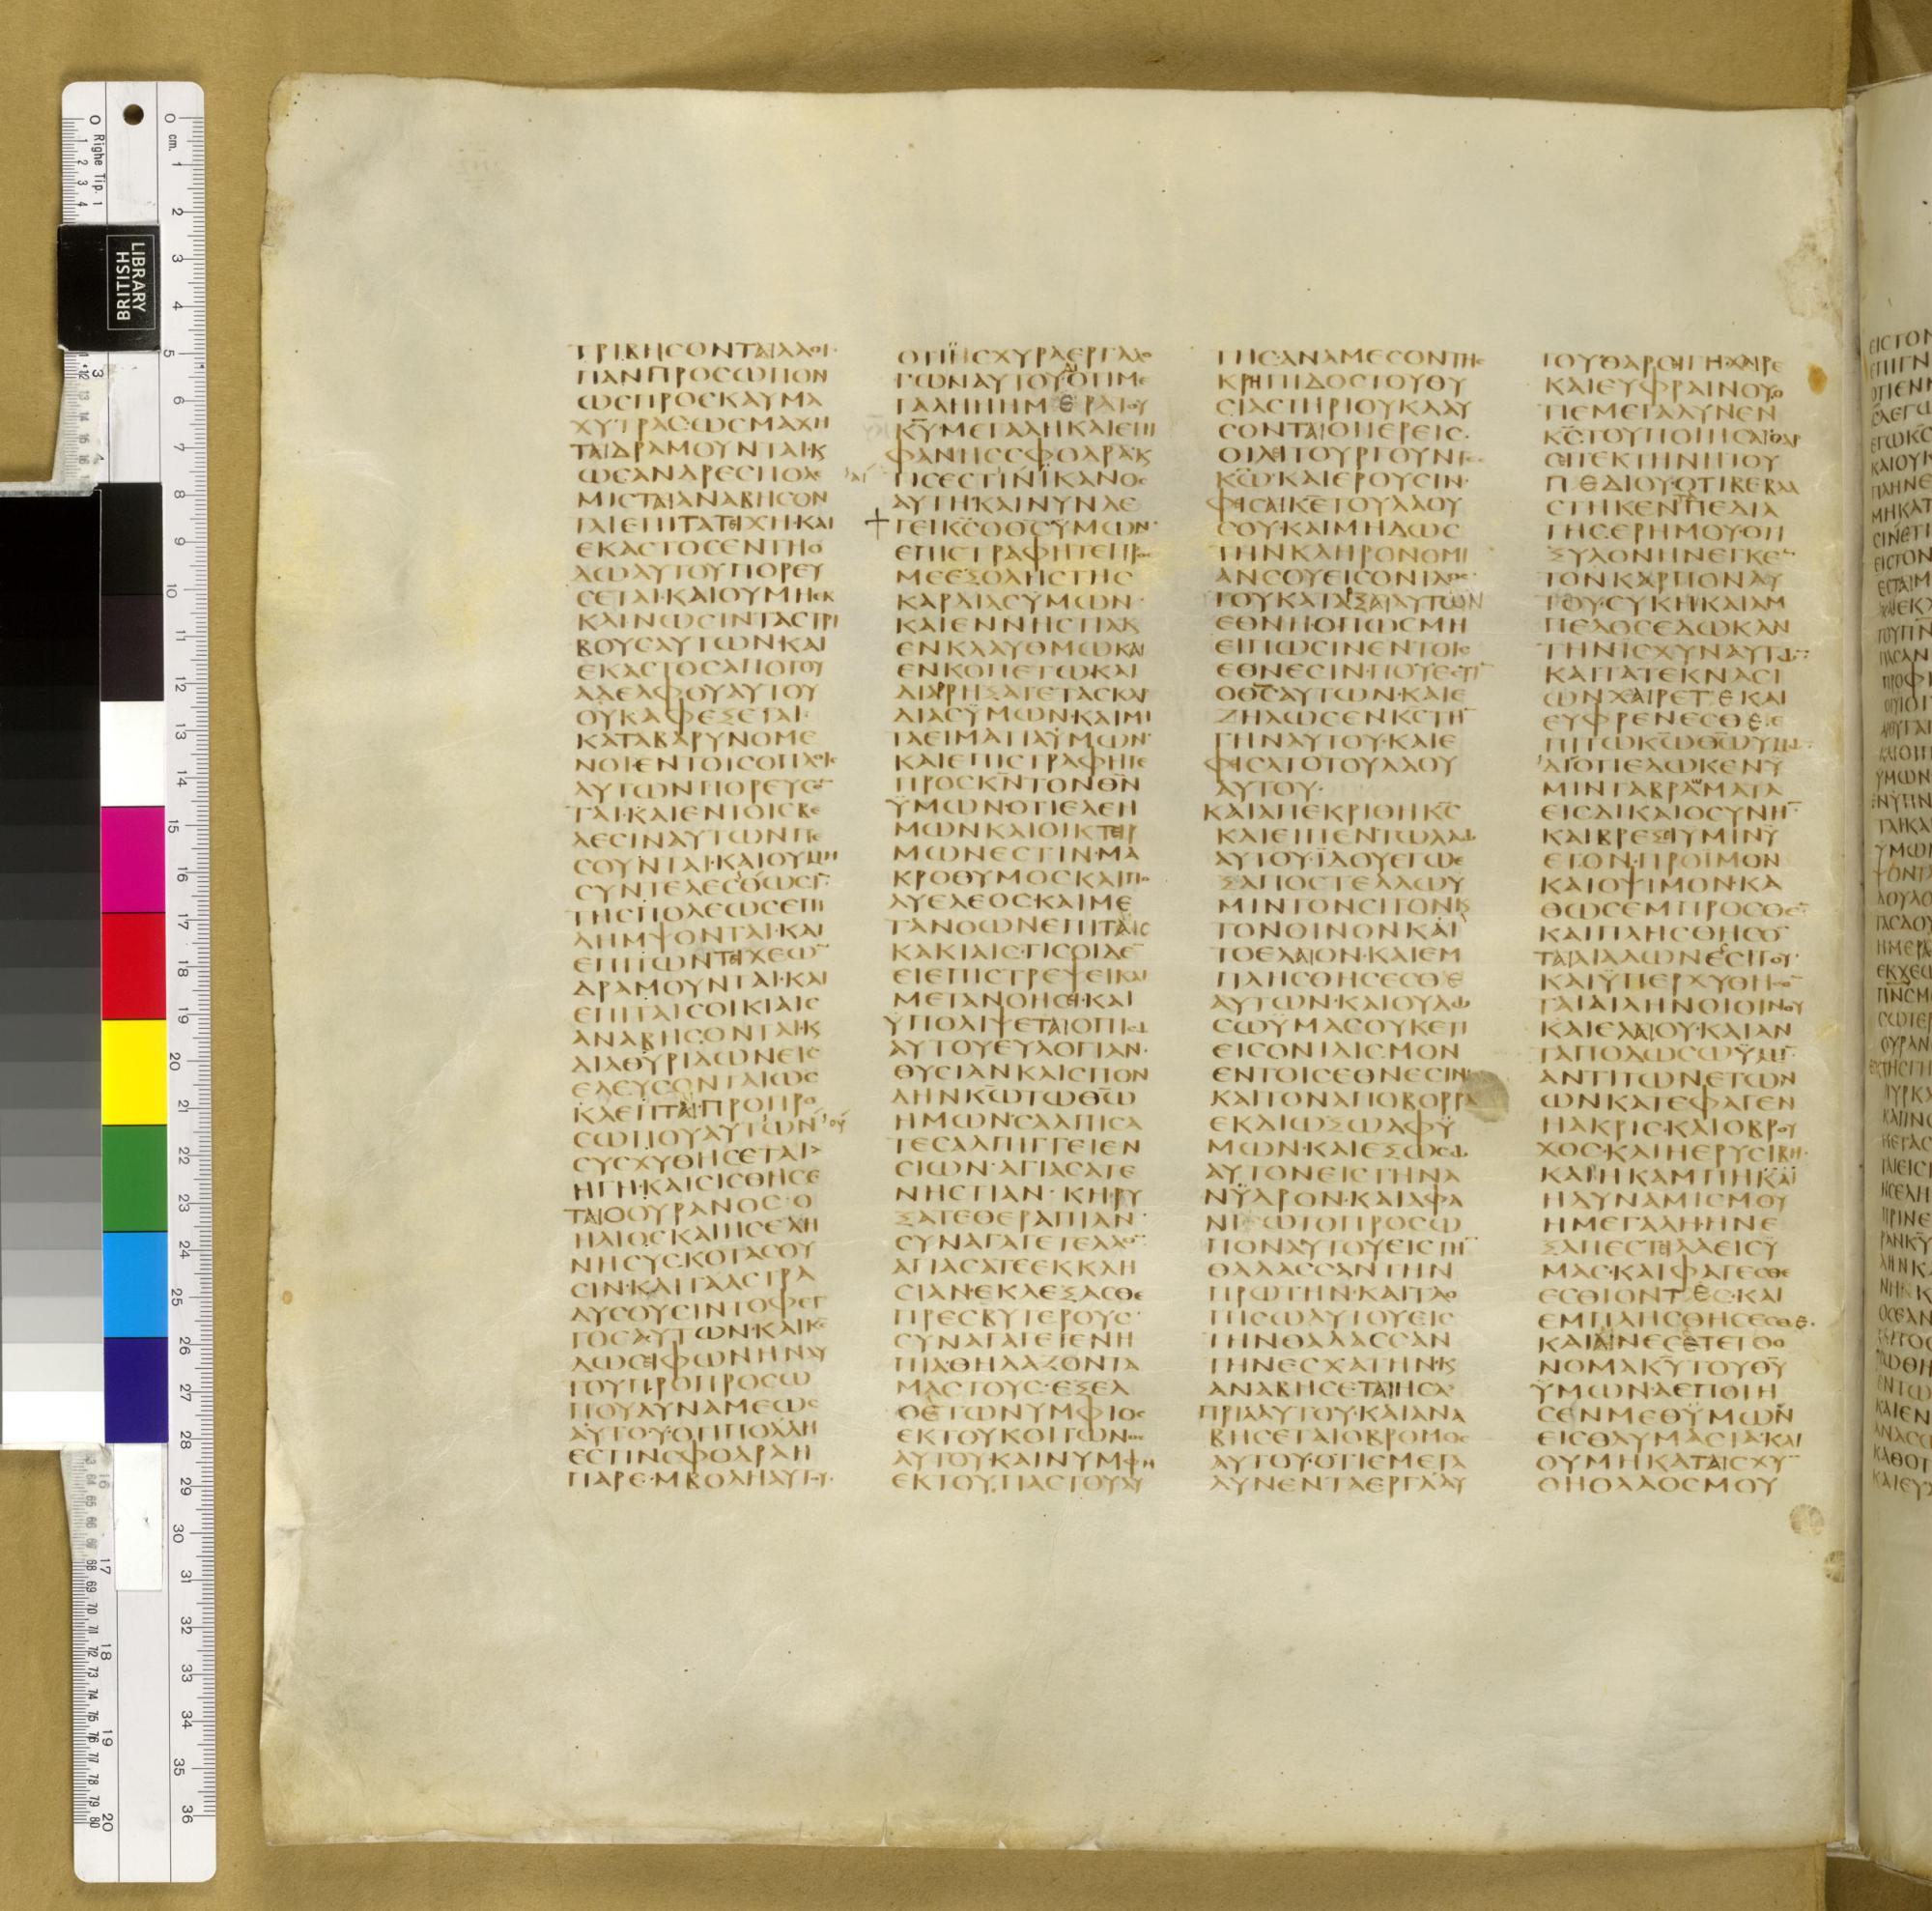 ΤΡΙΒΗϹΟΝΤΑΙΛΑΟΙ·
ΠΑΝΠΡΟϹΩΠΟΝ
ΩϹΠΡΟϹΚΑΥΜΑ
ΧΥΤΡΑϹ·ΩϹΜΑΧΗ
ΤΑΙΔΡΑΜΟΥΝΤΑΙ·Κ
ΩϹΑΝΔΡΕϹΠΟΛΕ
ΜΙϹΤΑΙΑΝΑΒΗϹΟΝ
ΤΑΙΕΠΙΤΑΤΕΙΧΗ·ΚΑΙ
ΕΚΑϹΤΟϹΕΝΤΗΟ
ΔΩΑΥΤΟΥΠΟΡΕΥ
ϹΕΤΑΙ·ΚΑΙΟΥΜΗΕΚ
ΚΛΙΝΩϹΙΝΤΑϹΤΡΙ
ΒΟΥϹΑΥΤΩΝ·ΚΑΙ
ΕΚΑϹΤΟϹΑΠΟΤΟΥ
ΑΔΕΛΦΟΥΑΥΤΟΥ
ΟΥΚΑΦΕΞΕΤΑΙ·
ΚΑΤΑΒΑΡΥΝΟΜΕ
ΝΟΙΕΝΤΟΙϹΟΠΛΟΙϹ
ΑΥΤΩΝΠΟΡΕΥϹΟ̅
ΤΑΙ·ΚΑΙΕΝΤΟΙϹΒΕ
ΛΕϹΙΝΑΥΤΩΝΠΕ
ϹΟΥΝΤΑΙ·ΚΑΙΟΥΜΗ
ϹΥΝΤΕΛΕϹΘΩϹΙ
ΤΗϹΠΟΛΕΩϹΕΠΙ
ΛΗΜΨΟΝΤΑΙ·ΚΑΙ
ΕΠΙΤΩΝΤΕΙΧΕΩ̅
ΔΡΑΜΟΥΝΤΑΙ·ΚΑΙ
ΕΠΙΤΑΙϹΟΙΚΙΑΙϹ
ΑΝΑΒΗϹΟΝΤΑΙ·Κ
ΔΙΑΘΥΡΙΔΩΝΕΙϹ
ΕΛΕΥϹΟΝΤΑΙΩϹ
ΚΛΕΠΤΑΙ·ΠΡΟΠΡΟ
ϹΩΠΟΥΑΥΤΩΝ
ϹΥϹΧΥΘΗϹΕΤΑΙ
ΗΓΗ·ΚΑΙϹΙϹΘΗϹΕ
ΤΑΙΟΟΥΡΑΝΟϹ·Ο
ΗΛΙΟϹΚΑΙΗϹΕΛΗ
ΝΗϹΥϹΚΟΤΑϹΟΥ
ϹΙΝ·ΚΑΙΤΑΑϹΤΡΑ
ΔΥϹΟΥϹΙΝΤΟΦΕΓ
ΓΟϹΑΥΤΩΝ·ΚΑΙΚϹ
ΔΩϹΕΙΦΩΝΗΝΑΥ
ΤΟΥΠΡΟΠΡΟϹΩ
ΠΟΥΔΥΝΑΜΕΩϹ
ΑΥΤΟΥ·ΟΤΙΠΟΛΛΗ
ΕϹΤΙΝϹΦΟΔΡΑΗ
ΠΑΡΕΜΒΟΛΗΑΥΤΟΥ·
ΟΤΙΪϹΧΥΡΑΕΡΓΑΛΟ
ΓΩΝΑΥΤΟΥΔΙΟΤΙΜΕ
ΓΑΛΗΗΗΜΕΡΑΤΟΥ
Κ̅Υ̅ΜΕΓΑΛΗΚΑΙΕΠΙ
ΦΑΝΗϹϹΦΟΔΡΑ·Κ
ΤΙϹΕϹΤΙΝΪΚΑΝΟϹ
ΑΥΤΗΚΑΙΝΥΝΛΕ
ΓΕΙΚ̅Ϲ̅ΟΘ̅Ϲ̅ΥΜΩΝ·
ΕΠΙϹΤΡΑΦΗΤΕΠΡΟϹ
ΜΕΕΞΟΛΗϹΤΗϹ
ΚΑΡΔΙΑϹΥΜΩΝ·
ΚΑΙΕΝΝΗϹΤΙΑΚ
ΕΝΚΛΑΥΘΜΩΚΑΙ
ΕΝΚΟΠΕΤΩΚΑΙ
ΔΙΑΡΡΗΞΑΤΕΤΑϹΚΑΡ
ΔΙΑϹΥΜΩΝ·ΚΑΙΜΗ
ΤΑΕΙΜΑΤΙΑΫΜΩΝ·
ΚΑΙΕΠΙϹΤΡΑΦΗΤΕ
ΠΡΟϹΚ̅Ν̅ΤΟΝΘ̅Ν̅
ΫΜΩΝ·ΟΤΙΕΛΕΗ
ΜΩΝΚΑΙΟΙΚΤΕΙΡ
ΜΩΝΕϹΤΙΝ·ΜΑ
ΚΡΟΘΥΜΟϹΚΑΙΠΟ
ΛΥΕΛΕΟϹ·ΚΑΙΜΕ
ΤΑΝΟΩΝΕΠΙΤΑΙϹ
ΚΑΚΙΑΙϹ·ΤΙϹΟΙΔΕ̅
ΕΙΕΠΙϹΤΡΕΨΕΙΚΑΙ
ΜΕΤΑΝΟΗϹΕΙ·ΚΑΙ
ΫΠΟΛΙΨΕΤΑΙΟΠΙϹΩ
ΑΥΤΟΥΕΥΛΟΓΙΑΝ·
ΘΥϹΙΑΝΚΑΙϹΠΟΝ
ΔΗΝΚ̅Ω̅ΤΩΘ̅Ω̅
ΗΜΩΝ·ϹΑΛΠΙϹΑ
ΤΕϹΑΛΠΙΓΓΕΙΕΝ
ϹΙΩΝ·ΑΓΙΑϹΑΤΕ
ΝΗϹΤΙΑΝ·ΚΗΡΥ
ΞΑΤΕΘΕΡΑΠΙΑΝ·
ϹΥΝΑΓΑΓΕΤΕΛΑΟΝ
ΑΓΙΑϹΑΤΕΕΚΚΛΗ
ϹΙΑΝ·ΕΚΛΕΞΑϹΘΕ
ΠΡΕϹΒΥΤΕΡΟΥϹ·
ϹΥΝΑΓΑΓΕΤΕΝΗ
ΠΙΑΘΗΛΑΖΟΝΤΑ
ΜΑϹΤΟΥϹ·ΕΞΕΛ
ΘΕΤΩΝΥΜΦΙΟϹ
ΕΚΤΟΥΚΟΙΤΩΝΟϹ
ΑΥΤΟΥΚΑΙΝΥΜΦΗ
ΕΚΤΟΥΠΑϹΤΟΥΑΥ
ΤΗϹ·ΑΝΑΜΕϹΟΝΤΗϹ
ΚΡΗΠΙΔΟϹΤΟΥΘΥ
ϹΙΑϹΤΗΡΙΟΥΚΛΑΥ
ϹΟΝΤΑΙΟΙΙΕΡΕΙϹ·
ΟΙΛΙΤΟΥΡΓΟΥΝΤΕϹ
Κ̅Ω̅·ΚΑΙΕΡΟΥϹΙΝ·
ΦΙϹΑΙΚ̅Ε̅ΤΟΥΛΑΟΥ
ϹΟΥ·ΚΑΙΜΗΔΩϹ
ΤΗΝΚΛΗΡΟΝΟΜΙ
ΑΝϹΟΥΕΙϹΟΝΙΔΟϹ·
ΤΟΥΚΑΤΑΡΞΑΙΑΥΤΩΝ
ΕΘΝΗΟΠΩϹΜΗ
ΕΙΠΩϹΙΝΕΝΤΟΙϹ
ΕΘΝΕϹΙΝ·ΠΟΥΕϹΤΙ̅
ΟΘ̅Ϲ̅ΑΥΤΩΝ·ΚΑΙΕ
ΖΗΛΩϹΕΝΚ̅Ϲ̅ΤΗ̅
ΓΗΝΑΥΤΟΥ·ΚΑΙΕ
ΦΙϹΑΤΟΤΟΥΛΑΟΥ
ΑΥΤΟΥ·
ΚΑΙΑΠΕΚΡΙΘΗΚ̅Ϲ̅
ΚΑΙΕΙΠΕΝΤΩΛΑΩ
ΑΥΤΟΥ·ΪΔΟΥΕΓΩΕ
ΞΑΠΟϹΤΕΛΛΩΥ
ΜΙΝΤΟΝϹΙΤΟΝΚ
ΤΟΝΟΙΝΟΝΚΑΙ
ΤΟΕΛΑΙΟΝ·ΚΑΙΕΜ
ΠΛΗϹΘΗϹΕϹΘΕ
ΑΥΤΩΝ·ΚΑΙΟΥΔΩ
ϹΩΫΜΑϹΟΥΚΕΤΙ
ΕΙϹΟΝΙΔΙϹΜΟΝ
ΕΝΤΟΙϹΕΘΝΕϹΙΝ
ΚΑΙΤΟΝΑΠΟΒΟΡΡΑ
ΕΚΔΙΩΞΩΑΦΫ
ΜΩΝ·ΚΑΙΕΞΩϹΩ
ΑΥΤΟΝΕΙϹΓΗΝΑ
ΝΥΔΡΟΝ·ΚΑΙΑΦΑ
ΝΙΩΤΟΠΡΟϹΩ
ΠΟΝΑΥΤΟΥΕΙϹΤΗ̅
ΘΑΛΑϹϹΑΝΤΗΝ
ΠΡΩΤΗΝ·ΚΑΙΤΑΟ
ΠΙϹΩΑΥΤΟΥΕΙϹ
ΤΗΝΘΑΛΑϹϹΑΝ
ΤΗΝΕϹΧΑΤΗΝ·Κ
ΑΝΑΒΗϹΕΤΑΙΗϹΑ
ΠΡΙΑΑΥΤΟΥ·ΚΑΙΑΝΑ
ΒΗϹΕΤΑΙΟΒΡΟΜΟϹ
ΑΥΤΟΥ·ΟΤΙΕΜΕΓΑ
ΛΥΝΕΝΤΑΕΡΓΑΑΥ
ΤΟΥΘΑΡϹΙΓΗ·ΧΑΙΡΕ
ΚΑΙΕΥΦΡΑΙΝΟΥΟ
ΤΙΕΜΕΓΑΛΥΝΕΝ
Κ̅Ϲ̅ΤΟΥΠΟΙΗϹΑΙΘΑΡ
ϹΙΤΕΚΤΗΝΗΤΟΥ
ΠΕΔΙΟΥ·ΟΤΙΒΕΒΛΑ
ϹΤΗΚΕΝΠΕΔΙΑ
ΤΗϹΕΡΗΜΟΥ·ΟΤΙ
ΞΥΛΟΝΗΝΕΓΚΕΝ
ΤΟΝΚΑΡΠΟΝΑΥ
ΤΟΥ·ϹΥΚΗ·ΚΑΙΑΜ
ΠΕΛΟϹΕΔΩΚΑΝ
ΤΗΝΙϹΧΥΝΑΥΤΩ̅
ΚΑΙΤΑΤΕΚΝΑϹΙ
ΩΝΧΑΙΡΕΤΕΚΑΙ
ΕΥΦΡΕΝΕϹΘΕΕ
ΠΙΤΩΚ̅Ω̅Θ̅Ω̅ΥΜΩ̅
ΔΙΟΤΙΕΔΩΚΕΝΥ
ΜΙΝΤΑΒΡΩΜΑΤΑ
ΕΙϹΔΙΚΑΙΟϹΥΝΗ̅
ΚΑΙΒΡΕΞΕΙΥΜΙΝΫ
ΕΤΟΝ·ΠΡΟΪΜΟΝ
ΚΑΙΟΨΙΜΟΝ·ΚΑ
ΘΩϹΕΜΠΡΟϹΘΕ̅
ΚΑΙΠΛΗϹΘΗϹΟ̅
ΤΑΙΑΙΑΛΩΝΕϹΙΤΟΥ·
ΚΑΙΫΠΕΡΧΥΘΗϹΟ̅
ΤΑΙΑΙΛΗΝΟΙΟΙΝΟΥ
ΚΑΙΕΛΑΙΟΥ·ΚΑΙΑΝ
ΤΑΠΟΔΩϹΩΫΜΙ̅
ΑΝΤΙΤΩΝΕΤΩΝ
ΩΝΚΑΤΕΦΑΓΕΝ
ΗΑΚΡΙϹ·ΚΑΙΟΒΡΟΥ
ΧΟϹ·ΚΑΙΗΕΡΥϹΙΒΗ·
ΚΑΙΗΚΑΜΠΗΚΑΙ
ΗΔΥΝΑΜΙϹΜΟΥ
ΗΜΕΓΑΛΗ·ΗΝΕ
ΞΑΠΕϹΤΙΛΑΕΙϹΫ
ΜΑϹ·ΚΑΙΦΑΓΕϹΘΕ
ΕϹΘΙΟΝΤΕϹ·ΚΑΙ
ΕΜΠΛΗϹΘΗϹΕϹΘΕ·
ΚΑΙΑΙΝΕϹΕΤΕΤΟΟ
ΝΟΜΑΚ̅Υ̅ΤΟΥΘ̅Υ̅
ΫΜΩΝ·ΑΕΠΟΙΗ
ϹΕΝΜΕΘΫΜΩΝ
ΕΙϹΘΑΥΜΑϹΙΑ·ΚΑΙ
ΟΥΜΗΚΑΤΑΙϹΧΥ̅
ΘΗΟΛΑΟϹΜΟΥ
LIBRARY
BRITISH
cm.
Righe Tip. 1